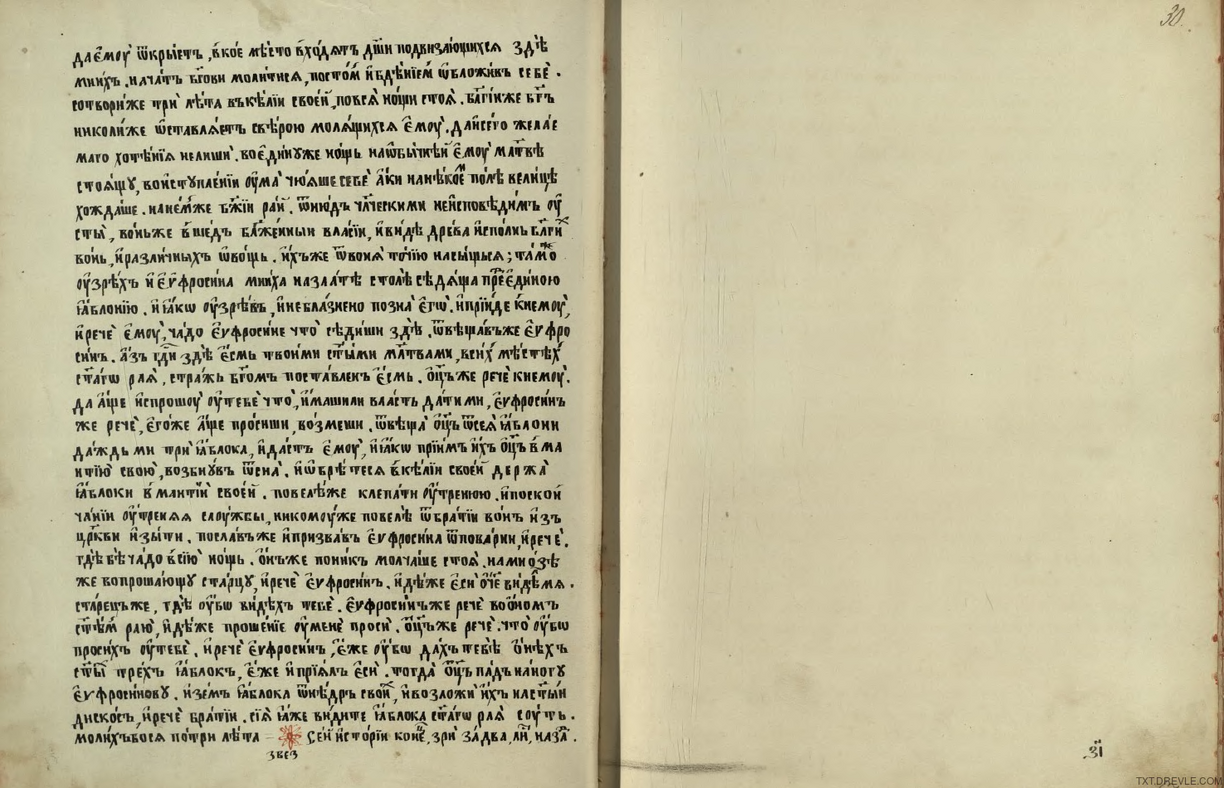 да є҆моу̀ ѿкрые́тъ, в кое мѣ́сто вхо́дѧтъ дш҃и подвиза́ющихсѧ здѣ̀
мнихъ. и нача́тъ бг҃ови моли́тисѧ, посто́м и҆ бдѣ́нїем ѡ҆бложивъ себѐ.
сотвори́ же трѝ лѣ́та въ кѣ́лїи свое́й, по всѧ̀ но́щи стоѧ̀. бл҃гїи же бг҃ъ
николи́же ѡ҆ставлѧ́етъ с вѣ́рою молѧ́щихсѧ є҆моу̀. да и҆ сего̀ жела́е
маго хотѣ́нїѧ не лишѝ. во є҆ди́нꙋ же но́щь на ѡ҆бы́чнѣй є҆моу̀ мл҃твѣ
стоѧ́щꙋ, во и҆стꙋпле́нїи оу҆ма̀ чю́ѧше себѐ а҆́ки на нѣ́коем по́лѣ вели́цѣ
хожда́ше. на не́мже бж҃їи ра́й. ѿню́дъ чл҃ческими неи҆сповѣ́димъ оу҆
сты̀, во́ньже вше́дъ бл҃же́нныи вла́сїи, и҆ ви́дѣ дре́ва и҆спо́лнь бл҃гих
во́нь, и҆ разли́чныхъ ѡ҆во́щь. и҆́хъже ѿ во́нѧ то́чїю насы́щьсѧ; та́мо
оу҆зрѣ́хъ и҆ є҆ѵфроси́на мни́ха на зла́тѣ сто́лѣ сѣдѧ́ща пред є҆ди́ною
ꙗ҆́блонїю. и҆ ꙗ҆́кѡ оу҆зрѣ́въ, и҆ небла́знено позна̀ є҆гѡ̀. и҆ прїи́де к немоу̀,
и҆ речѐ є҆моу̀, ча́до є҆ѵфроси́не что̀ сѣди́ши здѣ̀. ѿвѣща́въ же є҆ѵфро
си́нъ. а҆́зъ гд҃и здѣ̀ є҆́смь твои́ми ст҃ыми мл҃твами, в си́хъ мѣ́стѣхъ
ст҃а́гѡ раѧ̀, стра́жь бг҃омъ поста́вленъ є҆́смь. ѻ҆ц҃ъ же речѐ к немоу̀.
да а҆́ще и҆спрошоу̀ оу҆ тебѐ что̀, и҆́маши ли вла́сть да́ти ми, є҆ѵфроси́нъ
же речѐ, є҆го́же а҆́ще про́сиши, во́змеши. ѿвѣща̀ ѻ҆ц҃ъ ѿ сеѧ̀ ꙗ҆́блони
да́ждь ми трѝ ꙗ҆́блока, и҆ да́стъ є҆моу̀, и҆ ꙗ҆́кѡ прїи́мъ и҆́хъ ѻ҆ц҃ъ в ма
нтїю̀ свою̀, возбнꙋ́въ ѿ сна̀. и҆ ѡ҆брѣ́тесѧ в кѣ́лїи свое́й держа̀
ꙗ҆́блоки в ма́нтїи свое́й. повелѣ́ же клепа́ти оу҆́тренюю. и҆ по скон
ча́нїи оу҆́тренѧѧ слоу́жбы, никомоу́же повелѣ̀ ѿ бра́тїи во́нъ и҆зъ
цр҃кви и҆зы́ти. посла́въ же и҆ призва́въ є҆ѵфроси́на ѿ пова́рни, и҆ речѐ.
гдѣ̀ бѣ̀ ча́до в сїю̀ но́щь. ѻ҆́нъ же пони́къ молча́ше стоѧ̀. на мно́зѣ
же вопроша́ющꙋ ста́рцꙋ, и҆ речѐ є҆ѵфроси́нъ. и҆дѣ́же є҆сѝ ѻ҆́ч҃е ви́дѣ мѧ.
ста́рецъ же, гдѣ̀ оу҆́бѡ ви́дѣхъ тебѐ. є҆ѵфроси́нъ же речѐ во ѻ҆́номъ
ст҃ѣ́м раю̀, и҆дѣ́же проше́нїе оу҆ менѐ просѝ. ѻ҆ц҃ъ же речѐ. что̀ оу҆́бѡ
проси́хъ оу҆ тебѐ. и҆ речѐ є҆ѵфроси́нъ, є҆́же оу҆́бѡ да́хъ тебѣ̀ ѻ҆́нѣхъ
ст҃ы́х тре́хъ ꙗ҆́блокъ, є҆́же и҆ прїѧ́лъ є҆сѝ. тогда̀ ѻ҆ц҃ъ па́дъ на ногꙋ
є҆ѵфроси́новꙋ. и҆зе́мъ ꙗ҆́блока ѿ нѣ́дръ свои́х, и҆ возложѝ и҆́хъ на ст҃ы́и
ди́скосъ, и҆ речѐ бра́тїи. сїѧ̀ ꙗ҆̀же ви́дите ꙗ҆́блока ст҃а́гѡ раѧ̀ соу́ть.
моли́хъ бо сѧ по три лѣ́та — Сей и҆сто́рїи коне́ц, зри за два, ли, наза́д.
звез
30
зі
TXT.DREVLE.COM